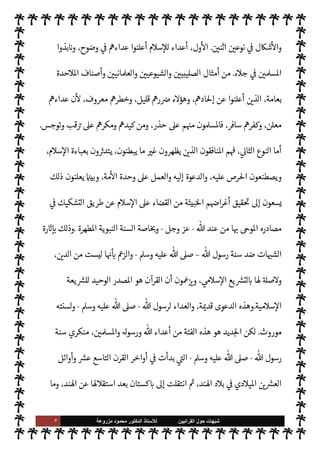 والأشكال في نوعين اثنين. الأول، أعداء للإسلام أعلنوا عداءهم في وضوح، ونابذوا
المسلمين في جلاء. من أمثال الصليبيين والشيوعيين والعلمانيين وأصناف الملاحدة
بعامة، الذين أعلنوا عن إلحادهم، وهؤلاء ضررهم قليل، وخطرهم معروف، لأن عداءهم
معلن، وكفرهم سافر، فالمسلمون منهم على حذر، ومن كيدهم ومكرهم على ترقب وتوجس.
أما النوع الثاني، فهم المنافقون الذين يظهرون غير ما يبطنون، يتدثرون بعباءة الإسلام،
ويصطنعون الحرص عليه، والدعوة إليه والعمل على وحدة الأمة. وبينما يعلنون ذلك
يسعون إلى تحقيق أغراضهم الخبيثة من القضاء على الإسلام عن طريق التشكيك في
مصادره الموحى بها من عند الله - عز وجل - وبخاصة السنة النبوية المطهرة .وذلك بإثارة
الشبهات ضد سنة رسول الله – صلى الله عليه وسلم - والزعم بأنها ليست من الدين،
ولاصلة لها بالتشريع الإسلامي، ويزعمون أن القرآن هو المصدر الوحيد للشريعة
الإسلامية.وهذه الدعوى قديمة، والعداء لرسول الله - صلى الله عليه وسلم - ولسنته
موروث. لكن الجديد هو هذه الفئة من أعداء الله ورسوله والمسلمين، منكري سنة
رسول الله - صلى الله عليه وسلم - التي بدأت في أواخر القرن التاسع عشر وأوائل
العشرين الميلادي في بلاد الهند، ثم انتقلت إلى باكستان بعد استقلالها عن الهند، وما
شبهات حول القرآنيين للأستاذ الدكتور محمود مزروعة ٣